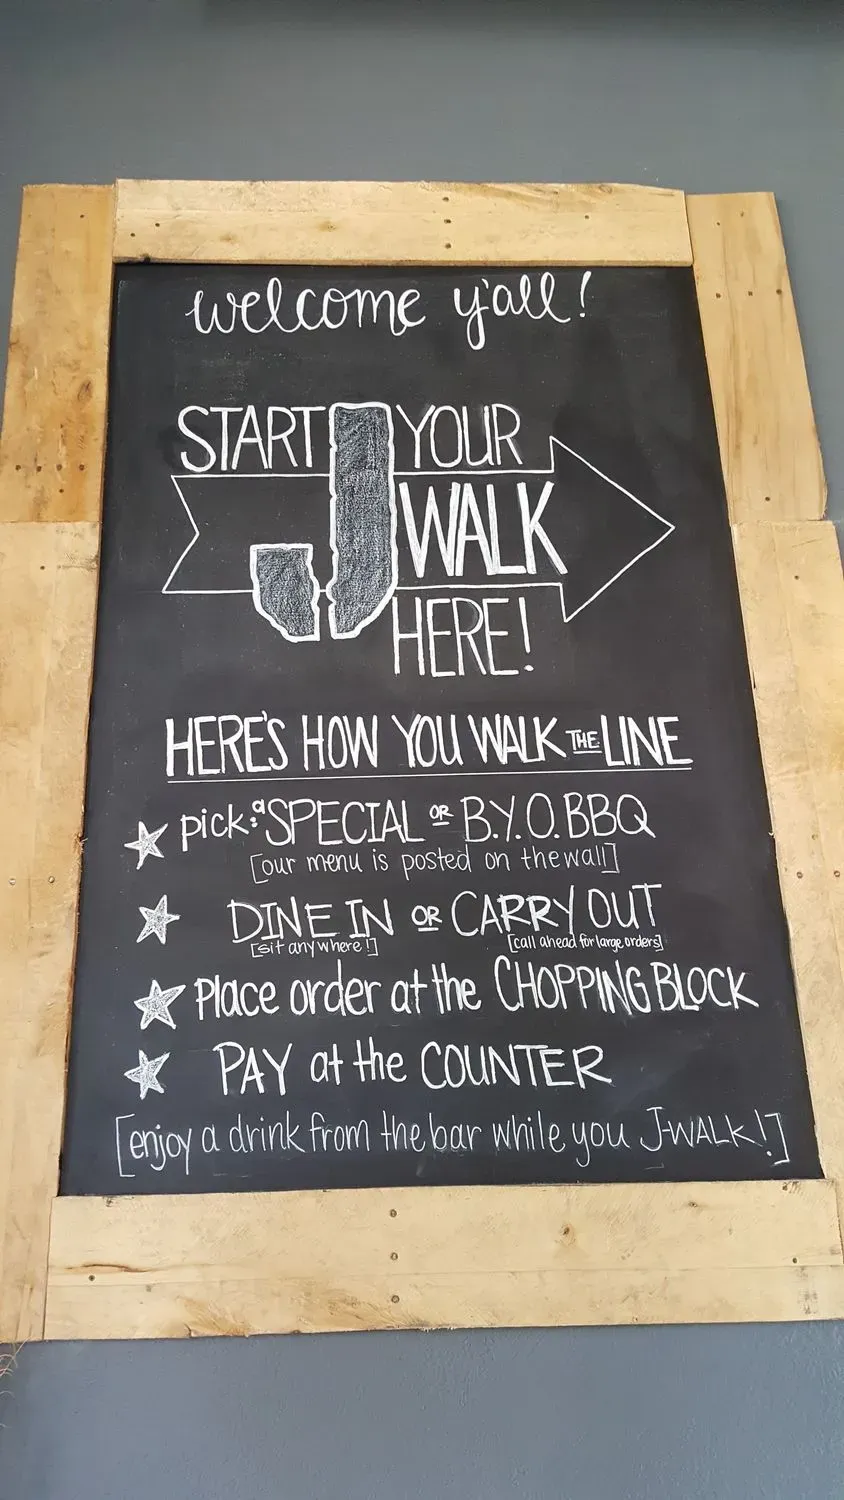 welcome y'all!
START J YOUR
WALK
HERE!
HERE'S HOW YOU WALK THE LINE
pick: a SPECIAL OR B.Y.O.BBQ
[our menu is posted on the wall]
DINE IN OR CARRY OUT
[sit anywhere!] [call ahead for large orders]
Place order at the CHOPPING BLOCK
PAY at the COUNTER
[enjoy a drink from the bar while you J-WALK!]